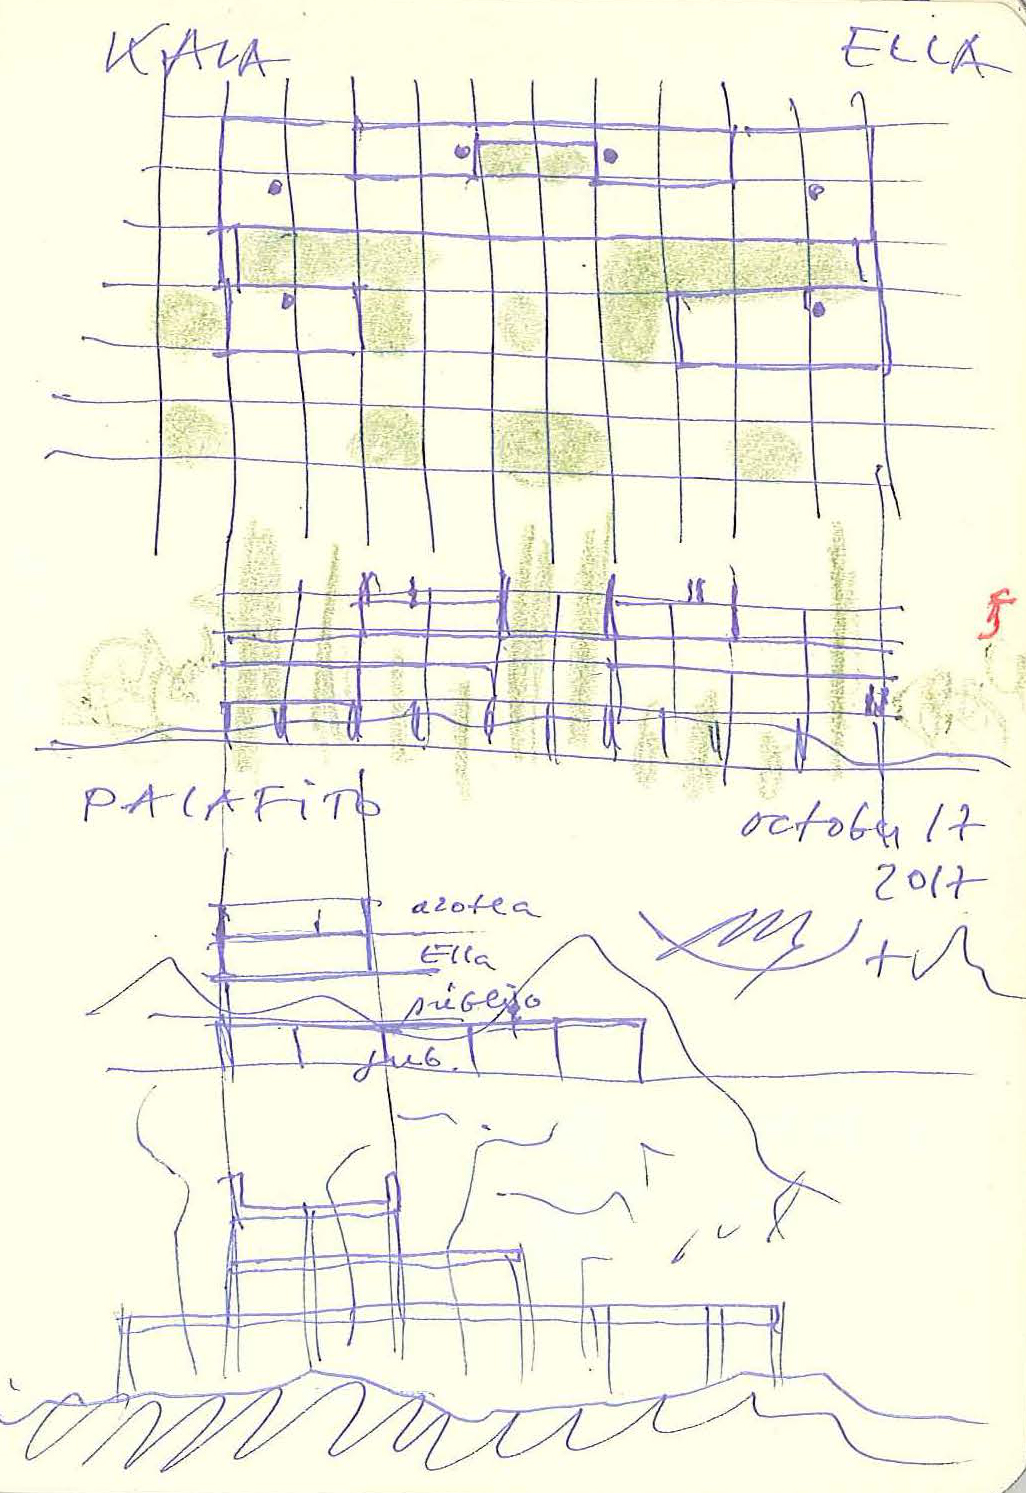 KALA ELLA
5
PALAFITO
october 17
2017
azotea
Ella
público